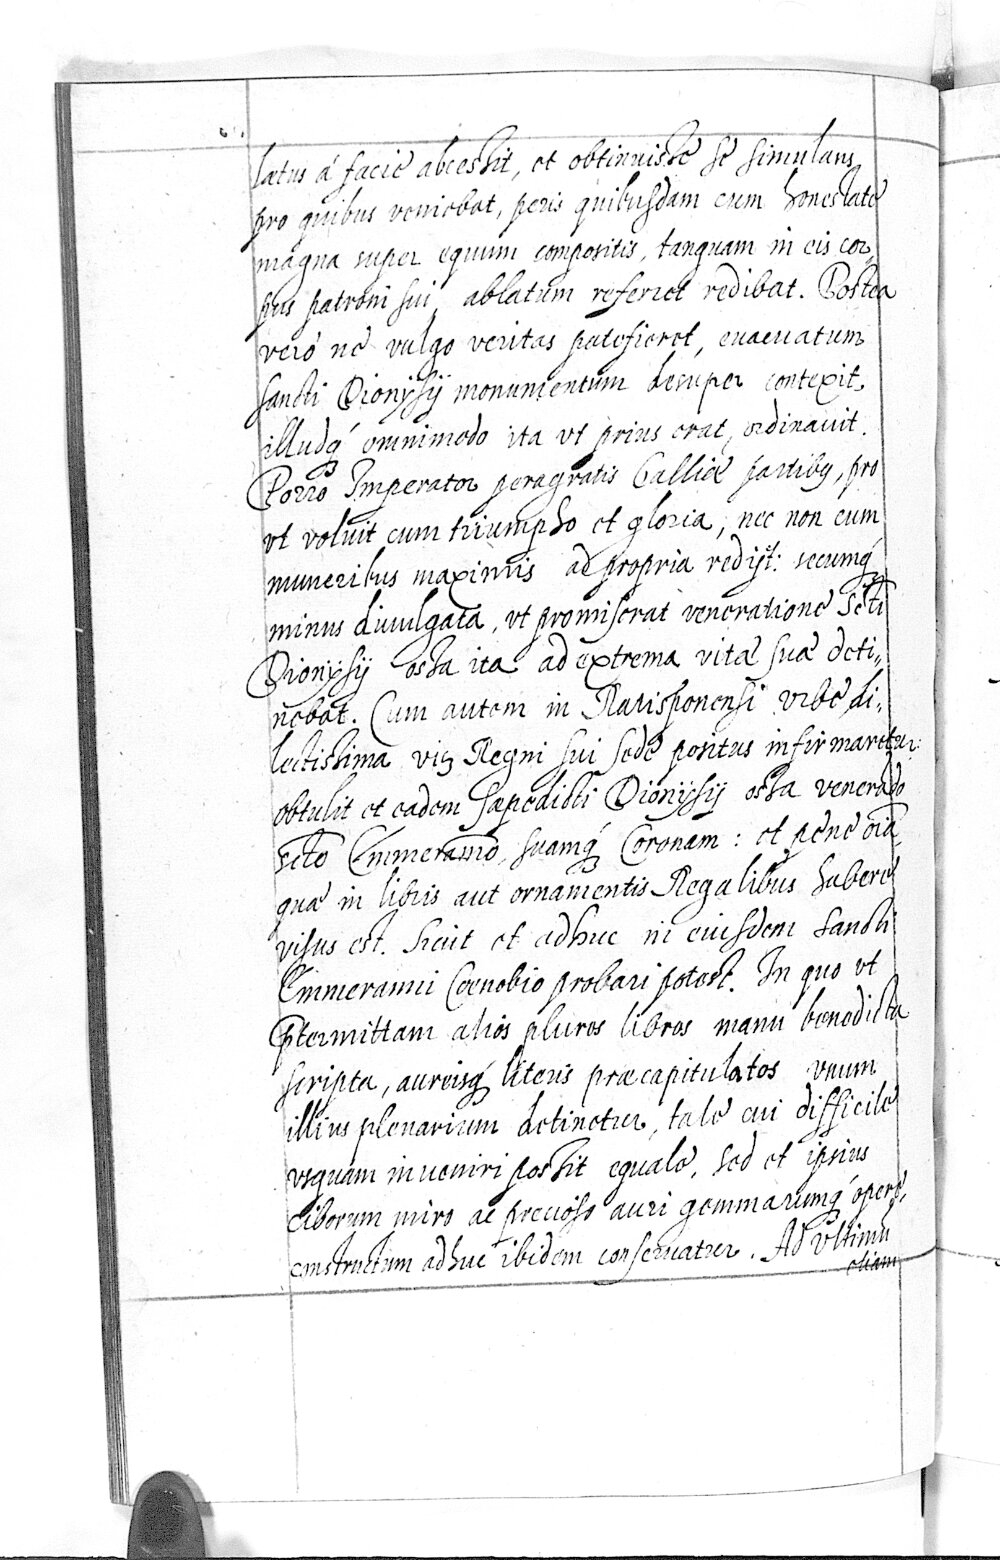 lætus á facie abcessit, et obtinuisse se simulans
pro quibus veniebat, peris quibusdam cum honestate
magna super equum compositis, tanquam in eis cor-
pus patroni sui, ablatum referret redibat. Postea
veró ne vulgo veritas patefieret, euacuatum
sancti Dionysÿ monumentum desuper contexit,
illudq́ omnimodo ita vt prius erat, ordinauit.
Porró Imperator peragratis Galliæ partibq, pro
vt voluit cum triumpho et gloria, nec non cum
muneribus maximis ad propria redijt: secumq́
minus diuulgata, vt promiserat veneratione Scti
Dionysÿ ossa ita ad extrema vitæ suæ deti,,
nebat. Cum autem in Ratisponensi vrbe di,,
lectissima viz Regni sui sede positus infirmaretur:
obtulit et eadem sæpedicti Dionysÿ ossa venerado
scto Emmeramo, suamq́ Coronam: et pene oia
quæ in libris aut ornamentis Regalibus habere
visus est. Sicut et adhuc in eiusdem sancti
Emmerami Cœnobio probari potest. In quo vt
ptermittam alios plures libros manu benedicta
scripta, aureisq́ literis præcapitulatos vnum
illius plenarium detinetur, tale cui difficile
vsquam inueniri possit equale, sed et ipsius
ciborum miro ac precioso auri gemmarumq́ opere,
constructum adhuc ibidem conseruatur. Ad vltimũ
etiam